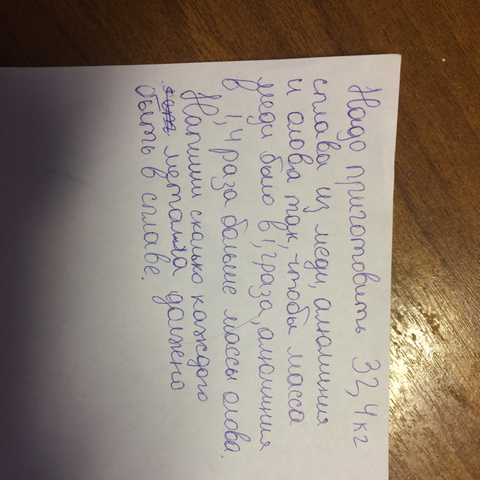 Надо приготовить 32,4 кг
сплава из меди, алюминия
и олова так, чтобы масса
меди было в 1, раза, алюминия
в 1,4 раза больше массы олова.
Напиши сколько каждого
металла должено
быть в сплаве.